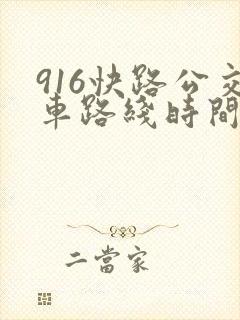 916快路公交
車路綫時間
二當家